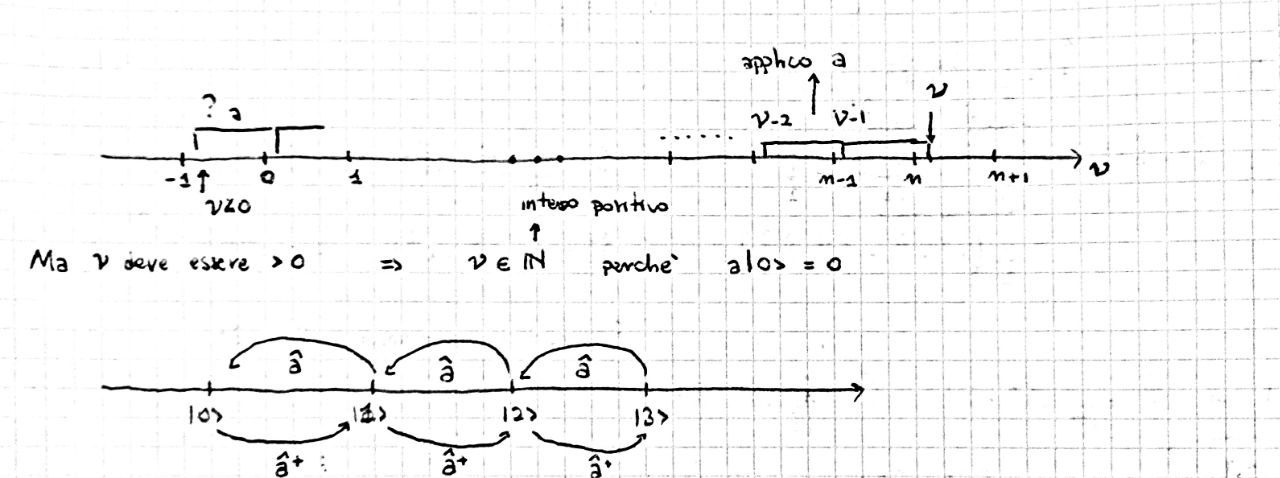 applico a
? a
ν
ν-2 ν-1
-1 0 1 n-1 n n+1 ν
ν<0
intero positivo
Ma ν deve essere >0 => ν ∈ ℕ perché a|0> = 0
â â â
|0> |1> |2> |3>
â+ â+ â+